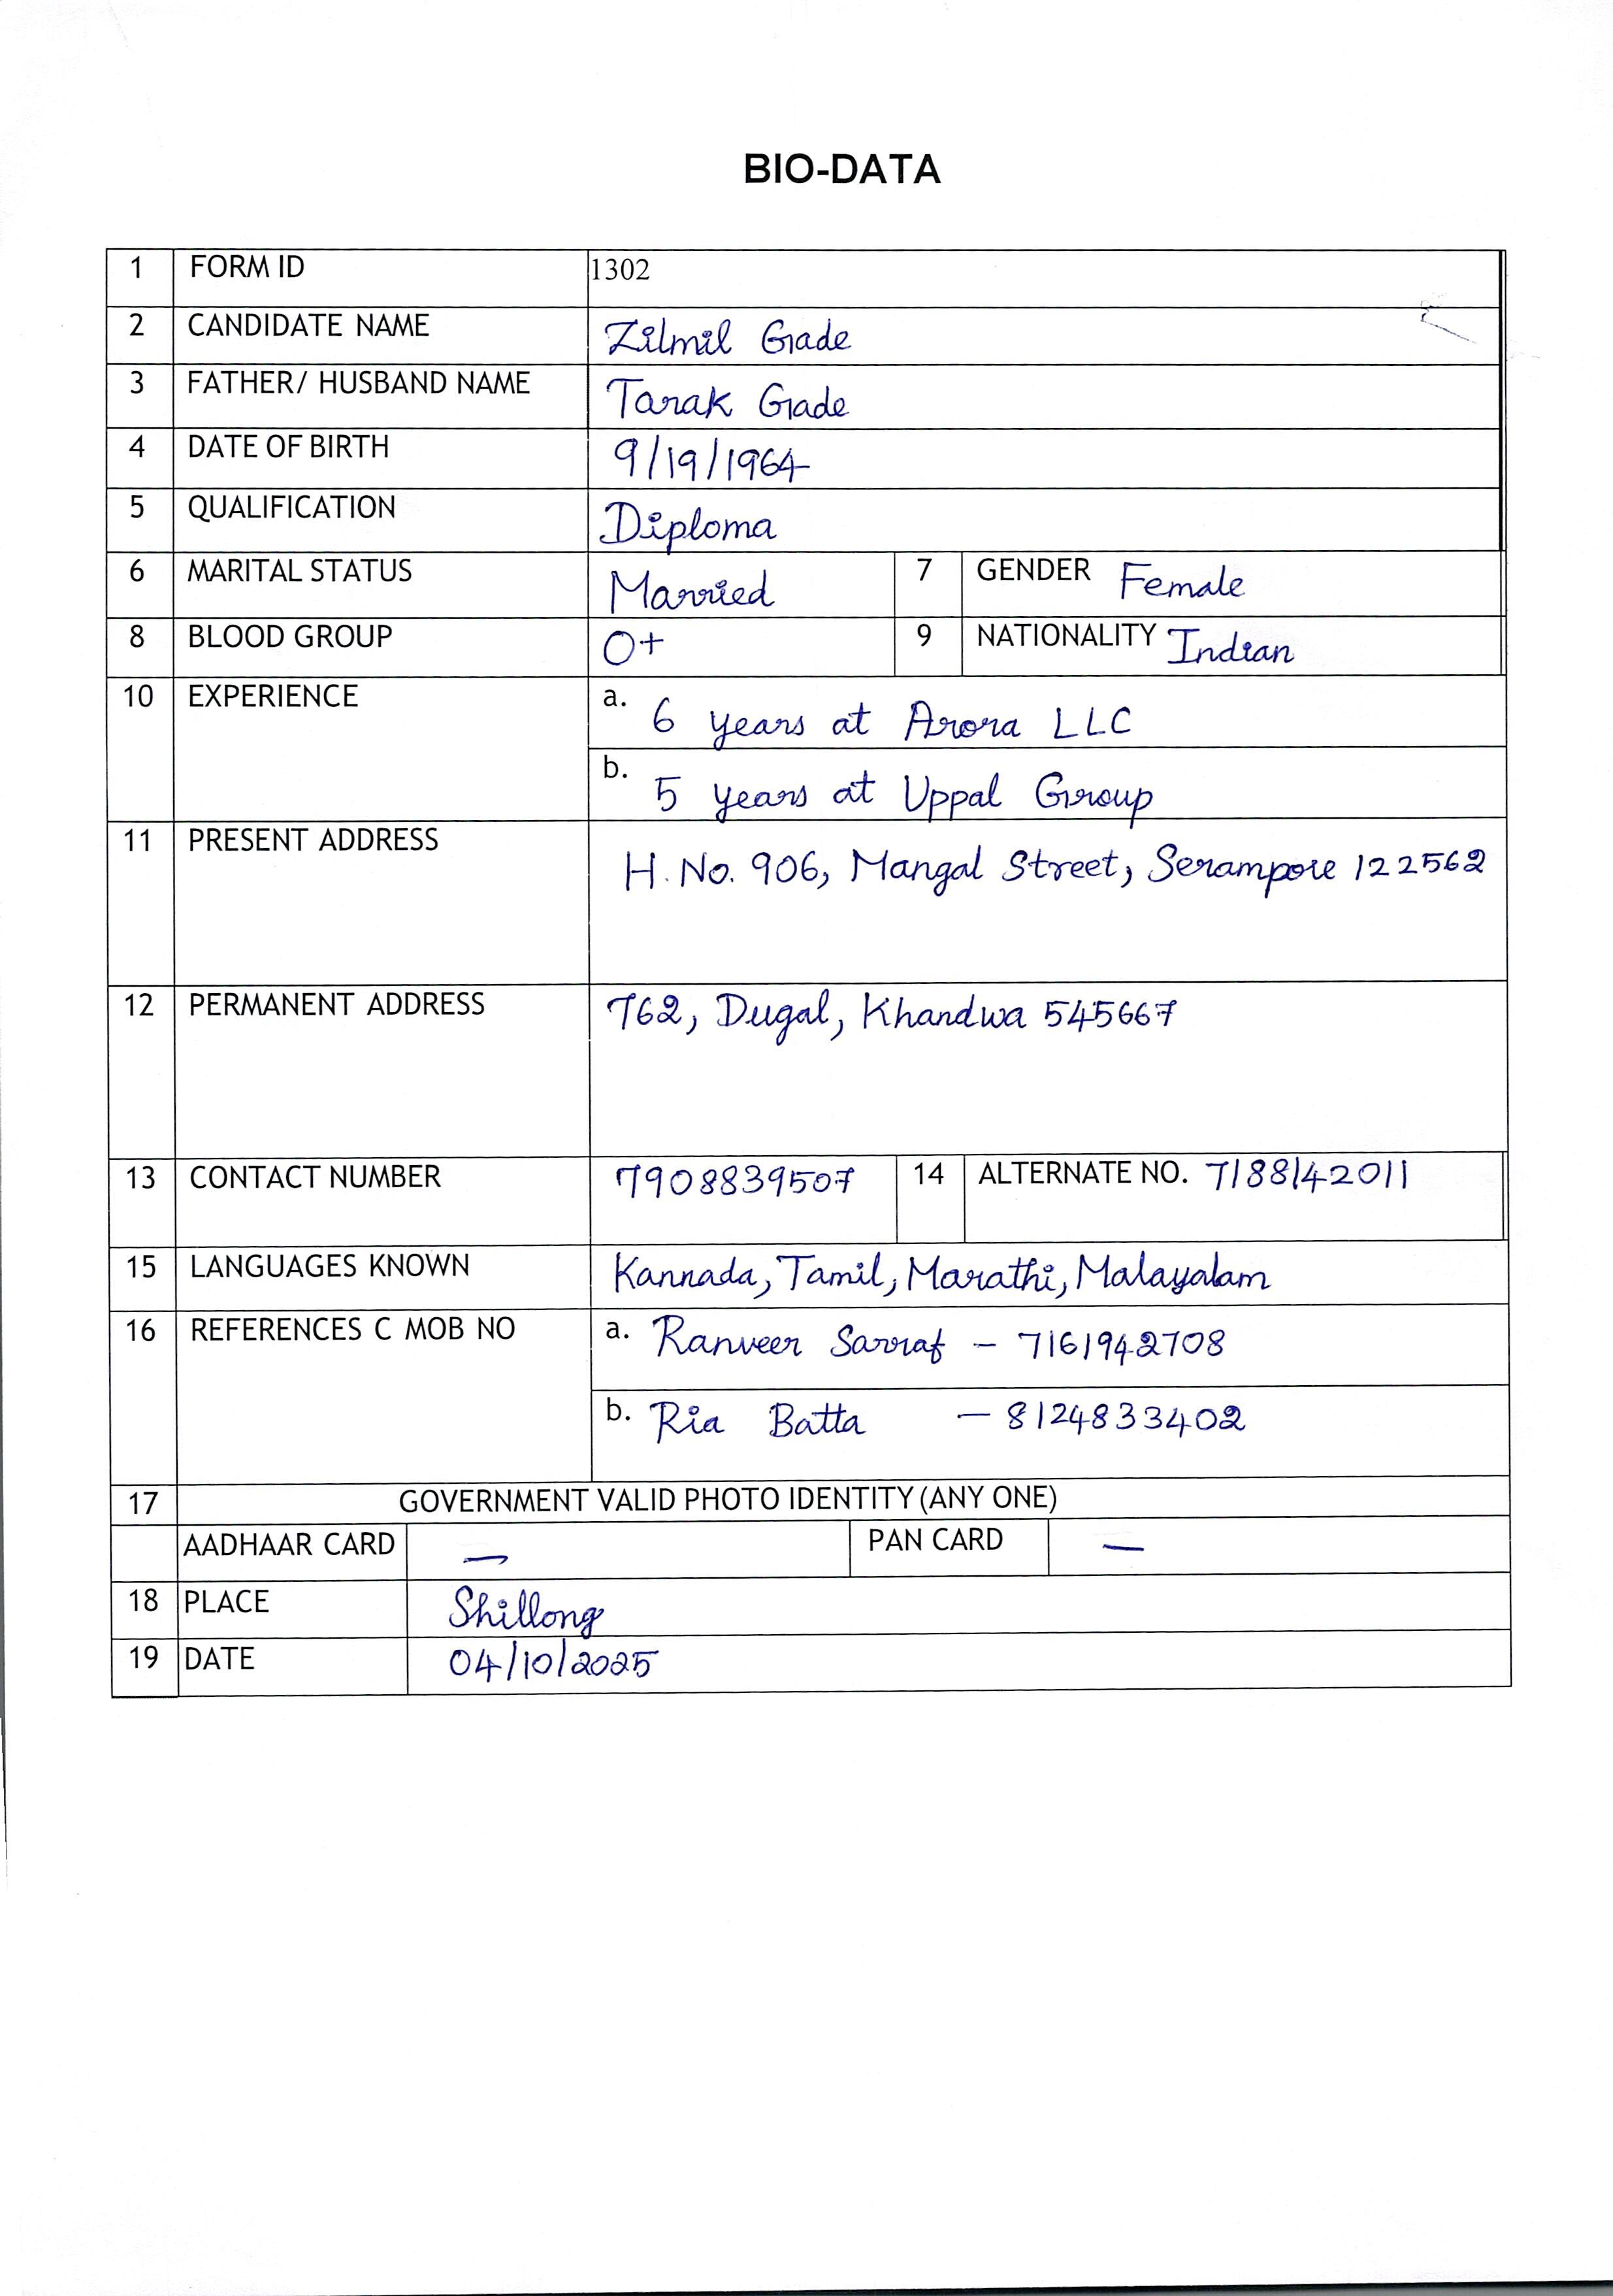 BIO-DATA
1 FORM ID 1302
2 CANDIDATE NAME Zilmil Grade
3 FATHER/ HUSBAND NAME Tarak Grade
4 DATE OF BIRTH 9/19/1964
5 QUALIFICATION Diploma
6 MARITAL STATUS Married 7 GENDER Female
8 BLOOD GROUP O+ 9 NATIONALITY Indian
10 EXPERIENCE a. 6 years at Arora LLC
b. 5 years at Uppal Group
11 PRESENT ADDRESS H. No. 906, Mangal Street, Serampore 122562
12 PERMANENT ADDRESS 762, Dugal, Khandwa 545667
13 CONTACT NUMBER 7908839507 14 ALTERNATE NO. 7188142011
15 LANGUAGES KNOWN Kannada, Tamil, Marathi, Malayalam
16 REFERENCES C MOB NO a. Ranveer Sarraf - 7161942708
b. Ria Batta - 8124833402
17 GOVERNMENT VALID PHOTO IDENTITY (ANY ONE)
AADHAAR CARD — PAN CARD —
18 PLACE Shillong
19 DATE 04/10/2025